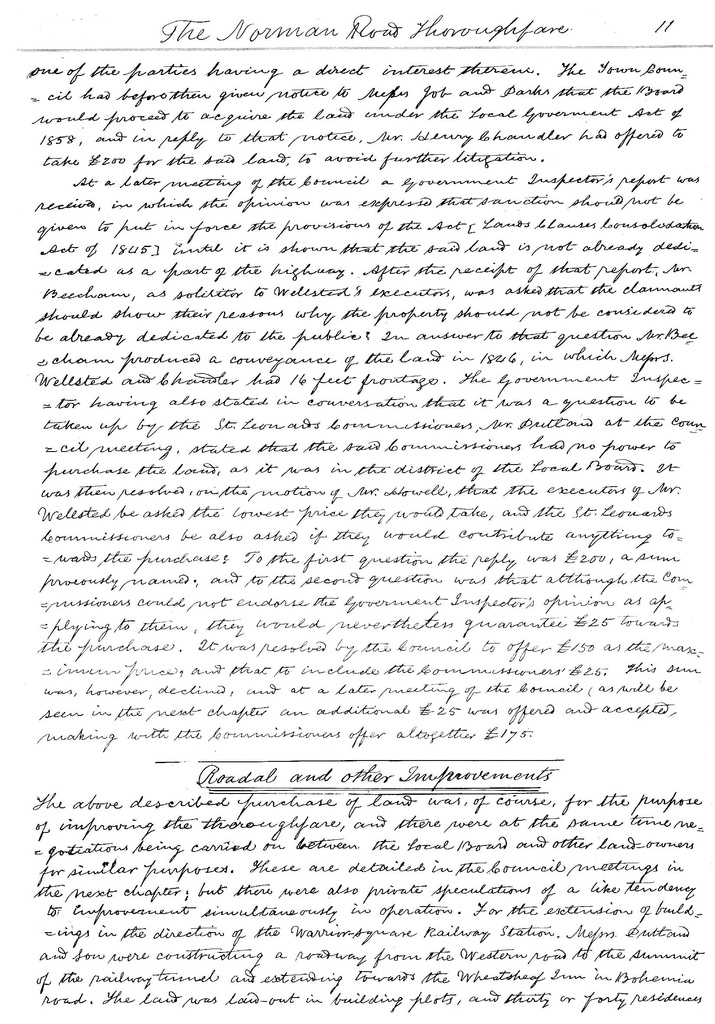 The Norman Road Thoroughfare 11
one of the parties having a direct interest therein. The Town Coun=
=cil had before then given notice to Messrs Job and Darks that the Board
would proceed to acquire the land under the Local Goverment Act of
1858, and in reply to that notice, Mr. Henry Chandler had offered to
take £200 for the said land, to avoid further litigation.
At a later meeting of the Council a Government Inspector's report was
received, in which the opinion was expressed that sanction should not be
given to put in force the provisions of the Act [Lands Clauses Consolodation
Act of 1845] until it is shown that the said land is not already dedi=
=cated as a part of the highway. After the receipt of that report, Mr.
Beecham, as solicitor to Wellsted's executors, was asked that the claimants
should show their reasons why the property should not be considered to
be already dedicated to the public? In answer to that question Mr. Bee
=cham produced a conveyance of the land in 1826, in which Messrs.
Wellsted and Chandler had 16 feet frontage. The Government Inspec=
=tor having also stated in conversation that it was a question to be
taken up by the St. Leonards Commissioners, Mr. Putland at the Coun
=cil meeting, stated that the said Commissioners had no power to
purchase the land, as it was in the district of the Local Board. It
was then resolved, on the motion of Mr. Howell, that the executors of Mr.
Wellsted be asked the lowest price they would take, and the St. Leonards
Commissioners be also asked if they would contribute anything to=
=wards the purchase? To the first question the reply was £200, a sum
previously named; and to the second question was that although the Com
=missioners could not endorse the Goverment Inspector's opinion as ap=
=plying to them, they would nevertheless guarantee £25 towards
the purchase. It was resolved by the Council to offer £150 as the max=
=imum price; and that to include the Commissioners' £25. This sum
was, however, declined; and at a later meeting of the Council, (as will be
seen in the next chapter an additional £25 was offered and accepted,
making with the Commissioners offer altogether £175.
Roadal and other Improvements
The above described purchase of land was, of course, for the purpose
of improving the thoroughfare, and there were at the same time ne=
=gotiations being carried on between the Local Board and other land-owners
for similar purposes. These are detailed in the Council meetings in
the next chapter; but there were also private speculations of a like tendency
to Improvement simultaneously in operation. For the extension of build=
=ings in the direction of the Warrior-square Railway Station. Messrs Putland
and Son were constructing a roadway from the Western road to the summit
of the railway tunnel and extending towards the Wheatsheaf Inn in Bohemia
road. The land was laid-out in building plots, and thirty or forty residences